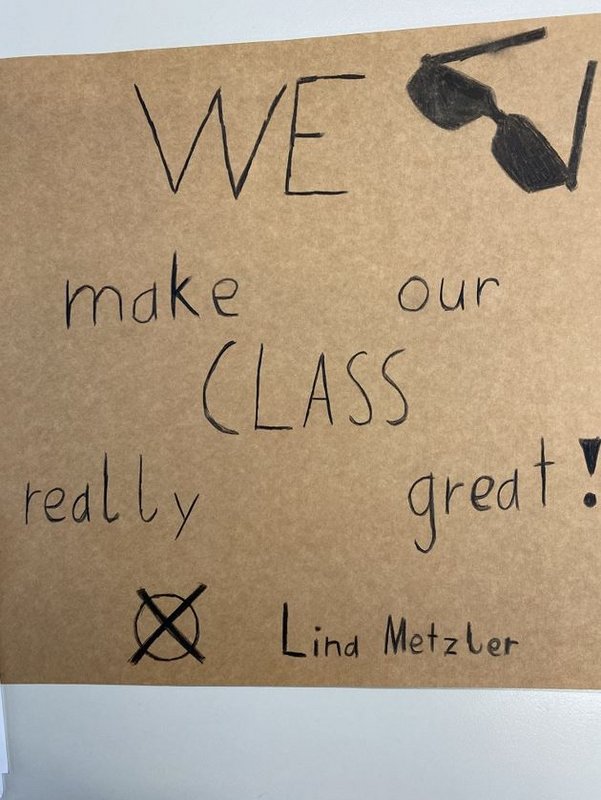 WE
make our
CLASS
really great!
Lina Metzler